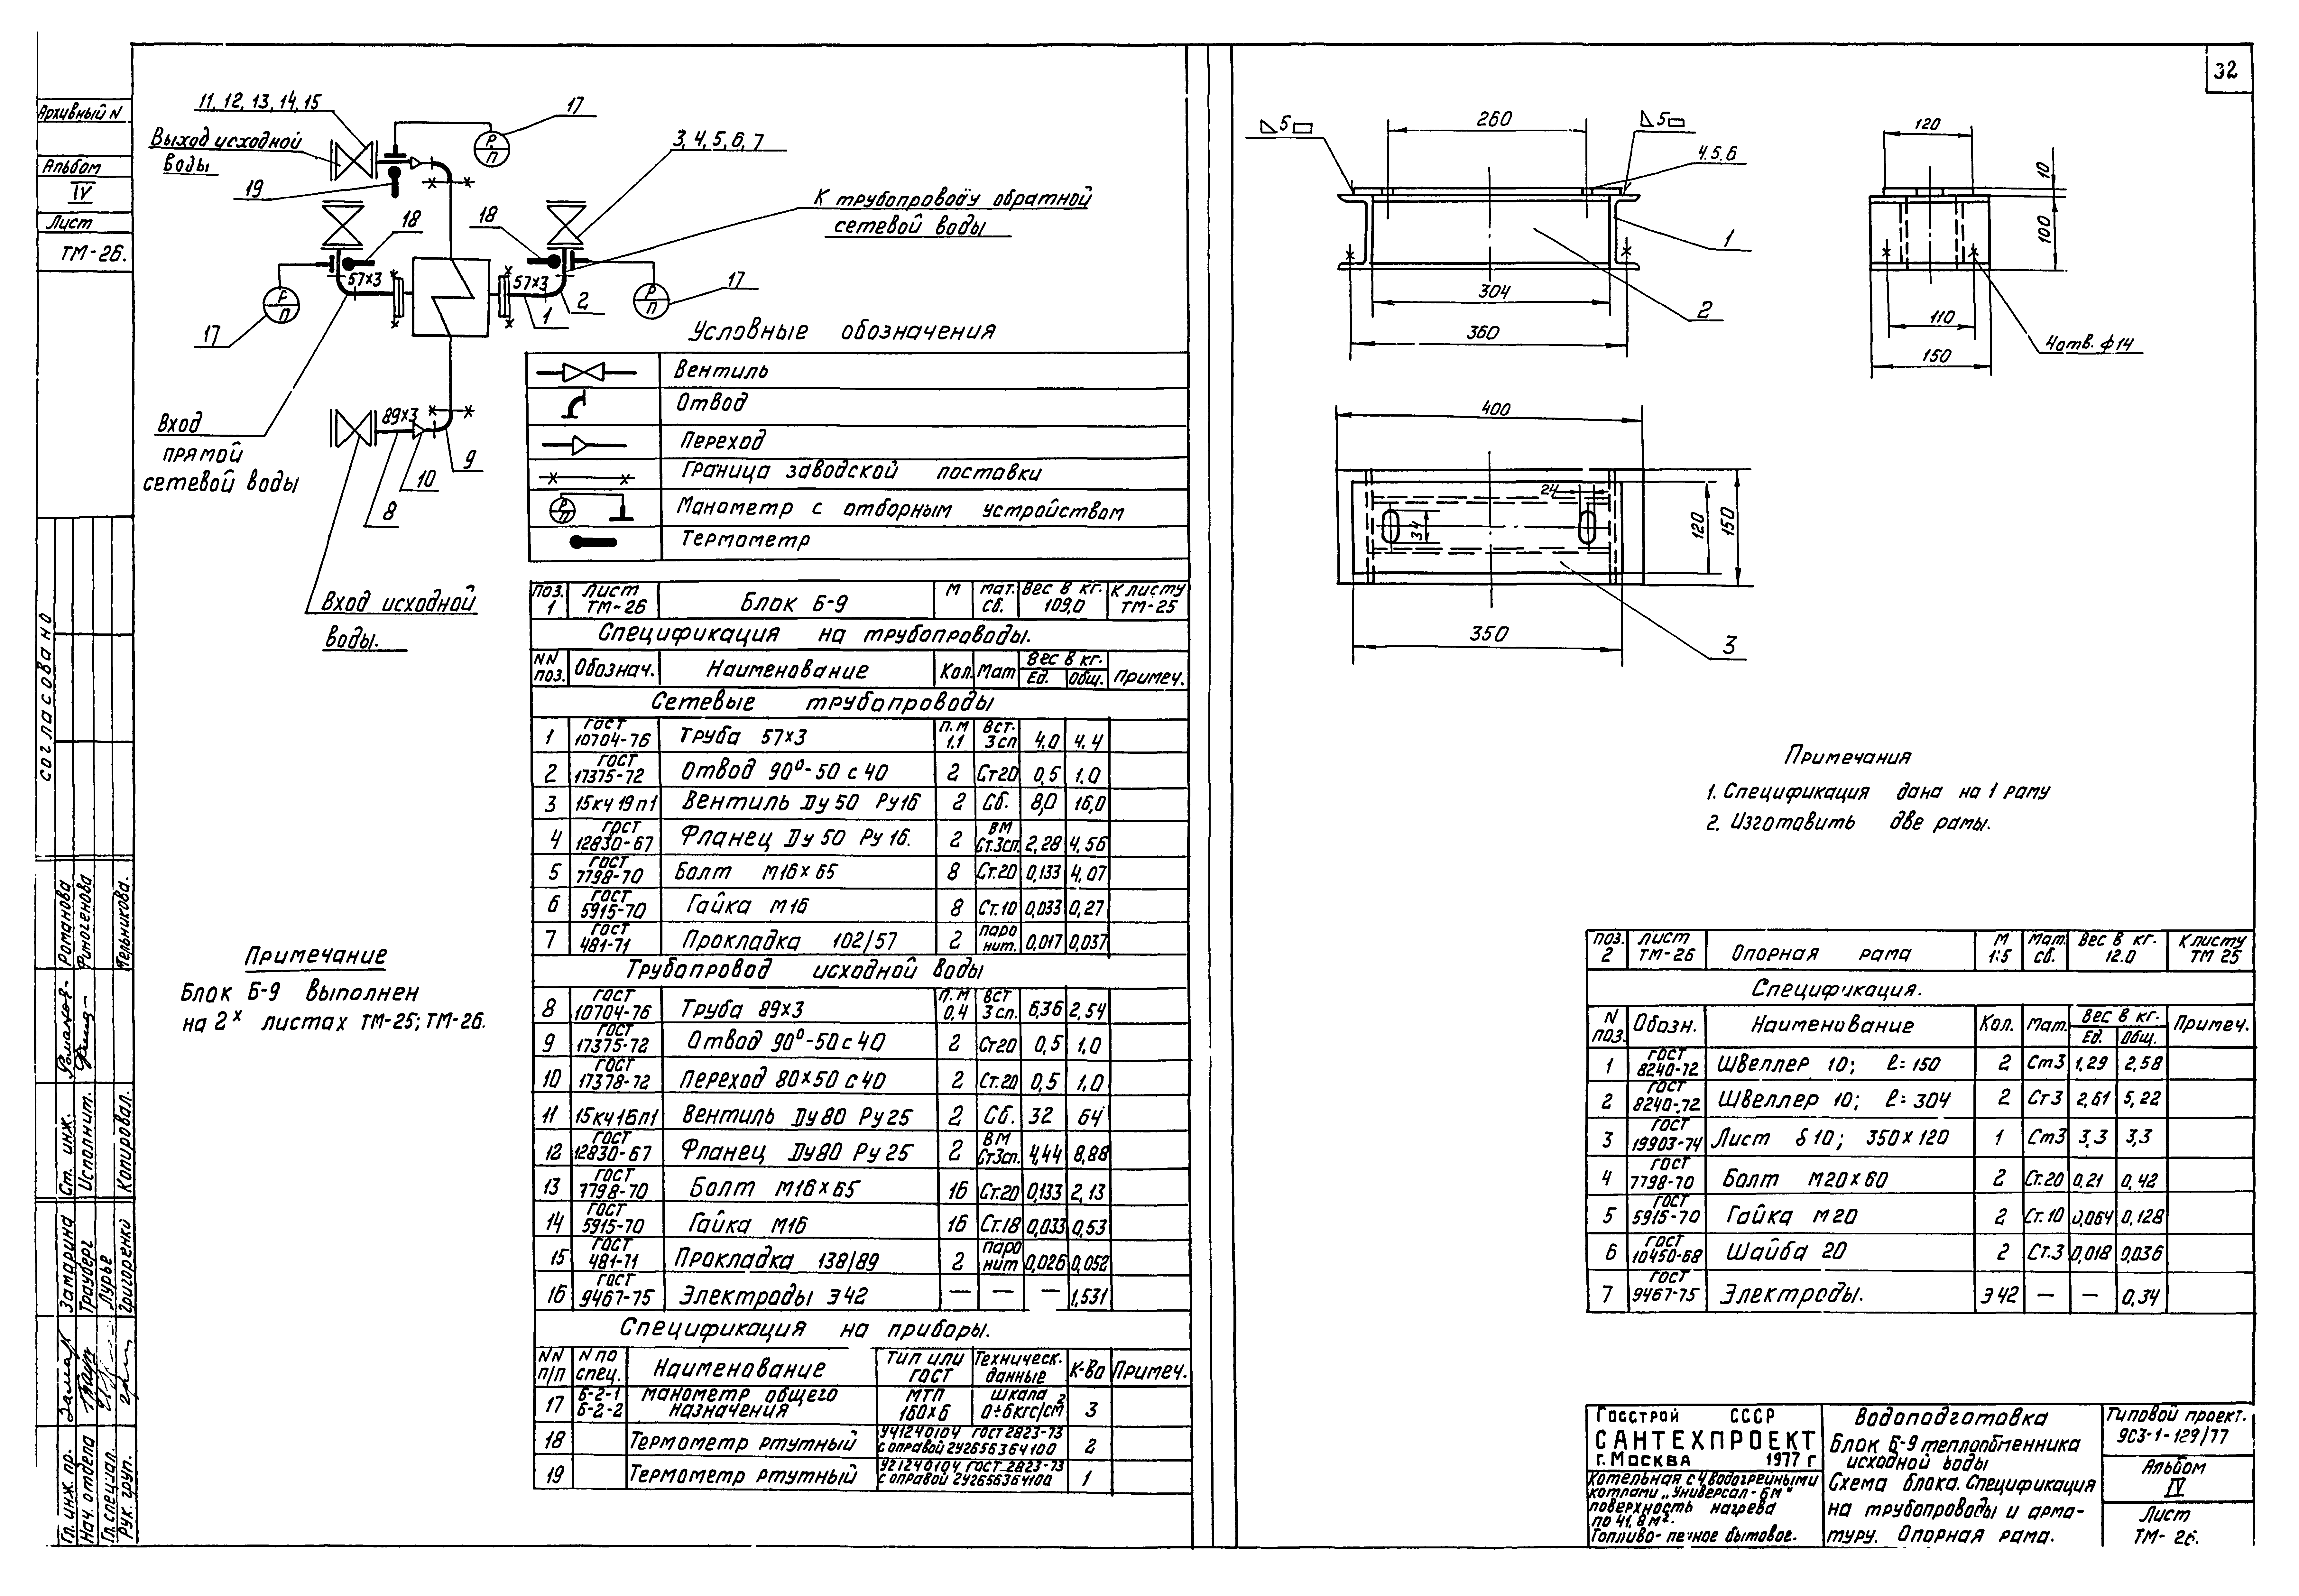 32
Архивный N
Альбом
IV
Лист
ТМ-26.
Согласовано
Романова
Риногенова
Тельникова.
Ст. инж.
Исполнит.
Копировал.
Замарина
Трауберг
Лурье
Григоренко
Гл. инж. пр.
Нач. отдела
Гл. специал.
Рук. груп.
11, 12, 13, 14, 15
17
Выход исходной
воды
19
3, 4, 5, 6, 7
18
18
К трубопроводу обратной
сетевой воды
57×3
57×3
Р
П
Р
П
Р
П
17
17
1
2
Вход
прямой
сетевой воды
89×3
8
10
9
Вход исходной
воды.
Условные обозначения
Вентиль
Отвод
Переход
Граница заводской поставки
Р
П
Манометр с отборным устройством
Термометр
Поз. 1 Лист ТМ-26 Блок Б-9 М Мат. Сб. Вес в кг. 109,0 К листу ТМ-25
Спецификация на трубопроводы.
NN поз. Обознач. Наименование Кол. Мат Вес в кг. Ед. Общ. Примеч.
Сетевые трубопроводы
1 ГОСТ 10704-76 Труба 57×3 п.м 1,1 Вст. 3сп 4,0 4,4
2 ГОСТ 17375-72 Отвод 90°-50 с 40 2 Ст20 0,5 1,0
3 15кч19п1 Вентиль Ду 50 Ру16 2 Сб. 8,0 16,0
4 ГОСТ 12830-67 Фланец Ду 50 Ру 16. 2 ВМ Ст.3сп. 2,28 4,56
5 ГОСТ 7798-70 Болт М16×65 8 Ст.20 0,133 4,07
6 ГОСТ 5915-70 Гайка М16 8 Ст.10 0,033 0,27
7 ГОСТ 481-71 Прокладка 102/57 2 паро нит. 0,017 0,037
Трубопровод исходной воды
8 ГОСТ 10704-76 Труба 89×3 п.м 0,4 Вст 3сп. 6,36 2,54
9 ГОСТ 17375-72 Отвод 90°-50 с 40 2 Ст20 0,5 1,0
10 ГОСТ 17378-72 Переход 80×50 с 40 2 Ст.20 0,5 1,0
11 15кч16п1 Вентиль Ду80 Ру 25 2 Сб. 32 64
12 ГОСТ 12830-67 Фланец Ду80 Ру 25 2 ВМ Ст3сп. 4,44 8,88
13 ГОСТ 7798-70 Болт М16×65 16 Ст.20 0,133 2,13
14 ГОСТ 5915-70 Гайка М16 16 Ст.18 0,033 0,53
15 ГОСТ 481-71 Прокладка 138/89 2 паро нит 0,026 0,052
16 ГОСТ 9467-75 Электроды Э42 — — — 1,531
Спецификация на приборы.
NN п/п N по спец. Наименование Тип или ГОСТ Техническ. данные К-во Примеч.
17 Б-2-1 Б-2-2 Манометр общего назначения МТП 160×6 шкала 0÷6кгс/см² 3
18 Термометр ртутный У41240104 ГОСТ 2823-73 с оправой 2У2656364100 2
19 Термометр ртутный У21240104 ГОСТ 2823-73 с оправой 2У2656364100 1
Примечание
Блок Б-9 выполнен
на 2х листах ТМ-25; ТМ-26.
5
260
5
4.5.6
1
2
304
360
120
10
100
110
150
4отв. ф14
400
24
34
120
150
350
3
Примечания
1. Спецификация дана на 1 раму
2. Изготовить две рамы.
Поз. 2 Лист ТМ-26 Опорная рама М 1:5 Мат. сб. Вес в кг. 12.0 К листу ТМ 25
Спецификация.
N поз. Обозн. Наименование Кол. Мат. Вес в кг. Ед. Общ. Примеч.
1 ГОСТ 8240-72 Швеллер 10; ℓ=150 2 Ст3 1,29 2,58
2 ГОСТ 8240-72 Швеллер 10; ℓ=304 2 Ст3 2,61 5,22
3 ГОСТ 19903-74 Лист δ10; 350×120 1 Ст3 3,3 3,3
4 ГОСТ 7798-70 Болт М20×60 2 Ст.20 0,21 0,42
5 ГОСТ 5915-70 Гайка М20 2 Ст.10 0,064 0,128
6 ГОСТ 10450-68 Шайба 20 2 Ст.3 0,018 0,036
7 ГОСТ 9467-75 Электроды. Э42 — — 0,34
Госстрой СССР
САНТЕХПРОЕКТ
г. Москва 1977 г
Котельная с 4 водогрейными
котлами „Универсал-6М"
поверхность нагрева
по 41,8 м².
Топливо-печное бытовое.
Водоподготовка
Блок Б-9 теплообменника
исходной воды
Схема блока. Спецификация
на трубопроводы и арма-
туру. Опорная рама.
Типовой проект.
903-1-129/77
Альбом
IV
Лист
ТМ-26.